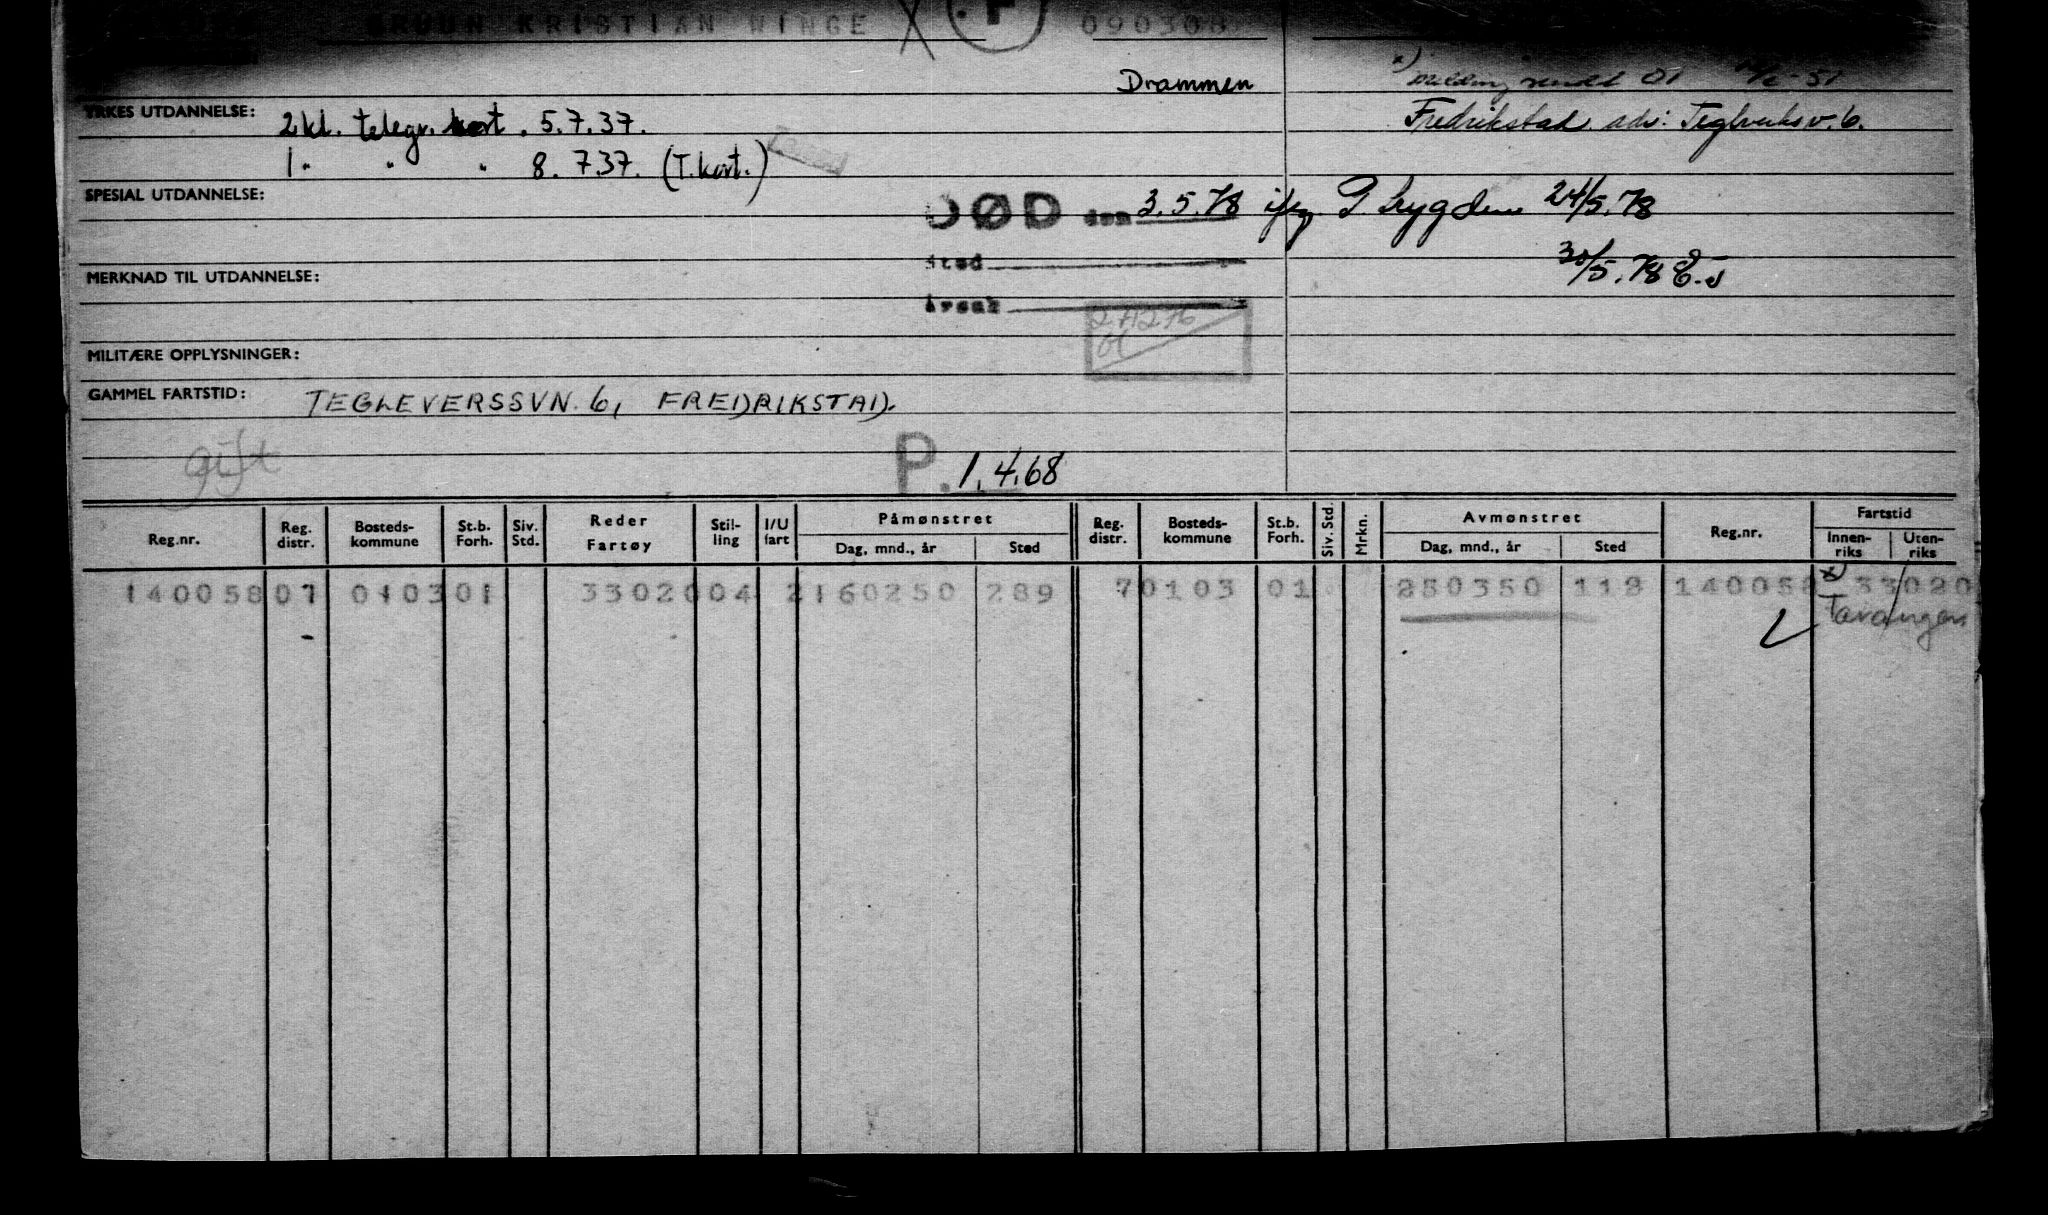 KRISTIAN WINGE X F 090308
Drammen
YRKES UTDANNELSE: 2 kl. telegr. kort. 5.7.37. Fredrikstad. adr: Teglverksv. 6.
1 " " " 8. 7 37. (T. kort.)
SPESIAL UTDANNELSE:
DØD den 3.5.78 24/5.78
Sted
30/5.78
MERKNAD TIL UTDANNELSE:
Årsak
MILITÆRE OPPLYSNINGER:
GAMMEL FARTSTID: TEGLEVERSSVN. 6, FREDRIKSTAD.
gift
P. 1.4.68
Reg.nr. Reg. distr. Bosteds-kommune St.b. Forh. Siv. Std. Reder Fartøy Stil-ling I/U fart Påmønstret Dag, mnd., år Sted Reg. distr. Bosteds-kommune St.b. Forh. Siv. Std. Mrkn. Avmønstret Dag, mnd., år Sted Reg.nr. Fartstid Innen-riks Uten-riks
140058 07 0103 01 33020 04 2 160250 289 7 0103 01 280350 118 140058 x) 33020
Tavangen